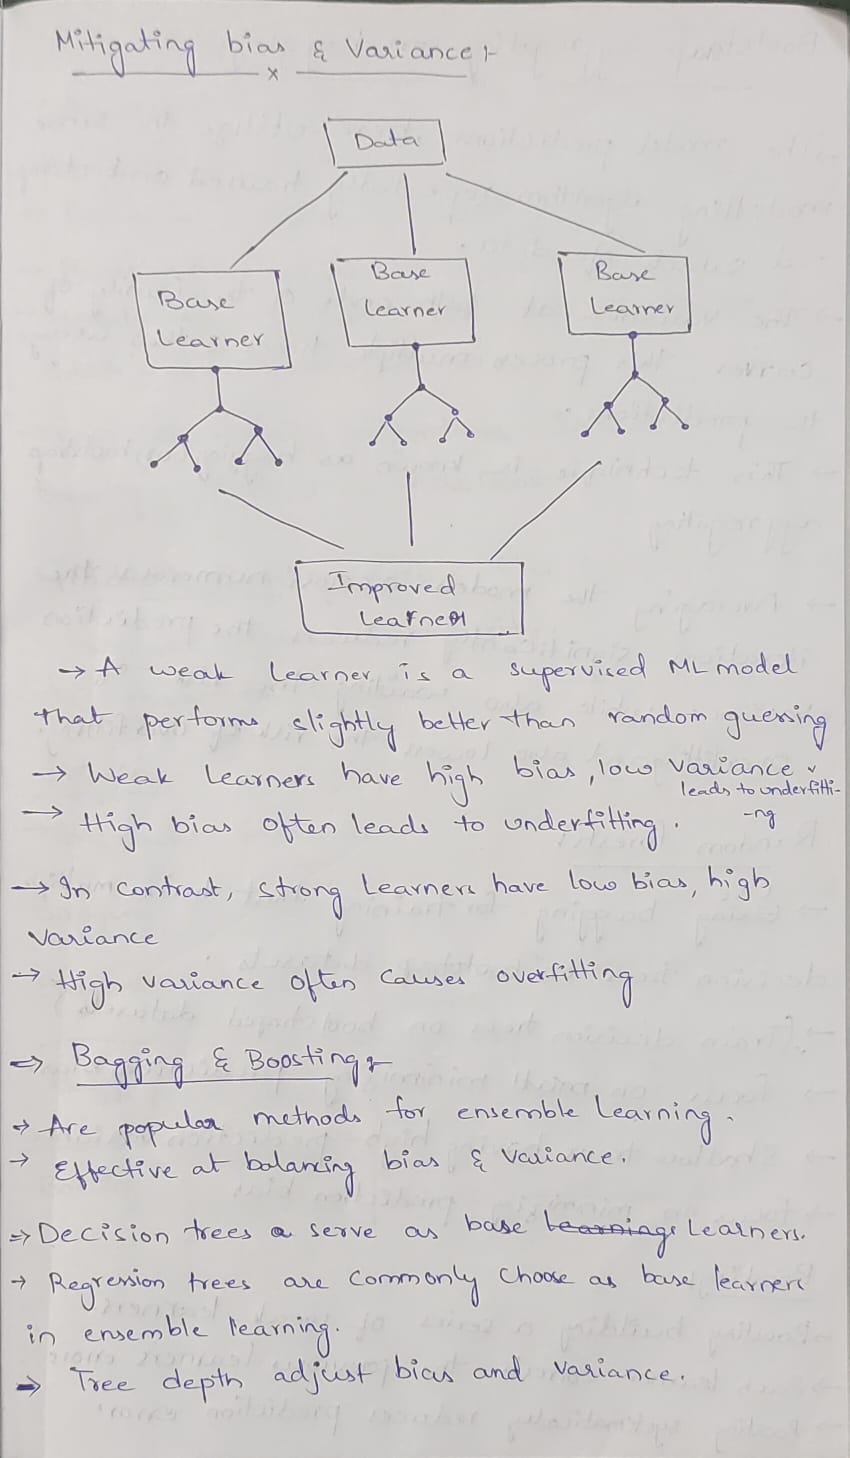 Mitigating bias & Variance :-
x
Data
Base
Learner
Base
Learner
Base
Learner
Improved
Learner
→ A weak learner is a supervised ML model
that performs slightly better than random guessing
→ Weak learners have high bias, low variance
leads to underfitti-
-ng
→ High bias often leads to underfitting.
→ In contrast, strong learners have low bias, high
variance
→ High variance often causes overfitting
⇒ Bagging & Boosting :-
→ Are popular methods for ensemble learning.
→ Effective at balancing bias & variance.
⇒ Decision trees a serve as base learnings Learners.
→ Regression trees are commonly choose as base learners
in ensemble learning.
→ Tree depth adjust bias and variance.